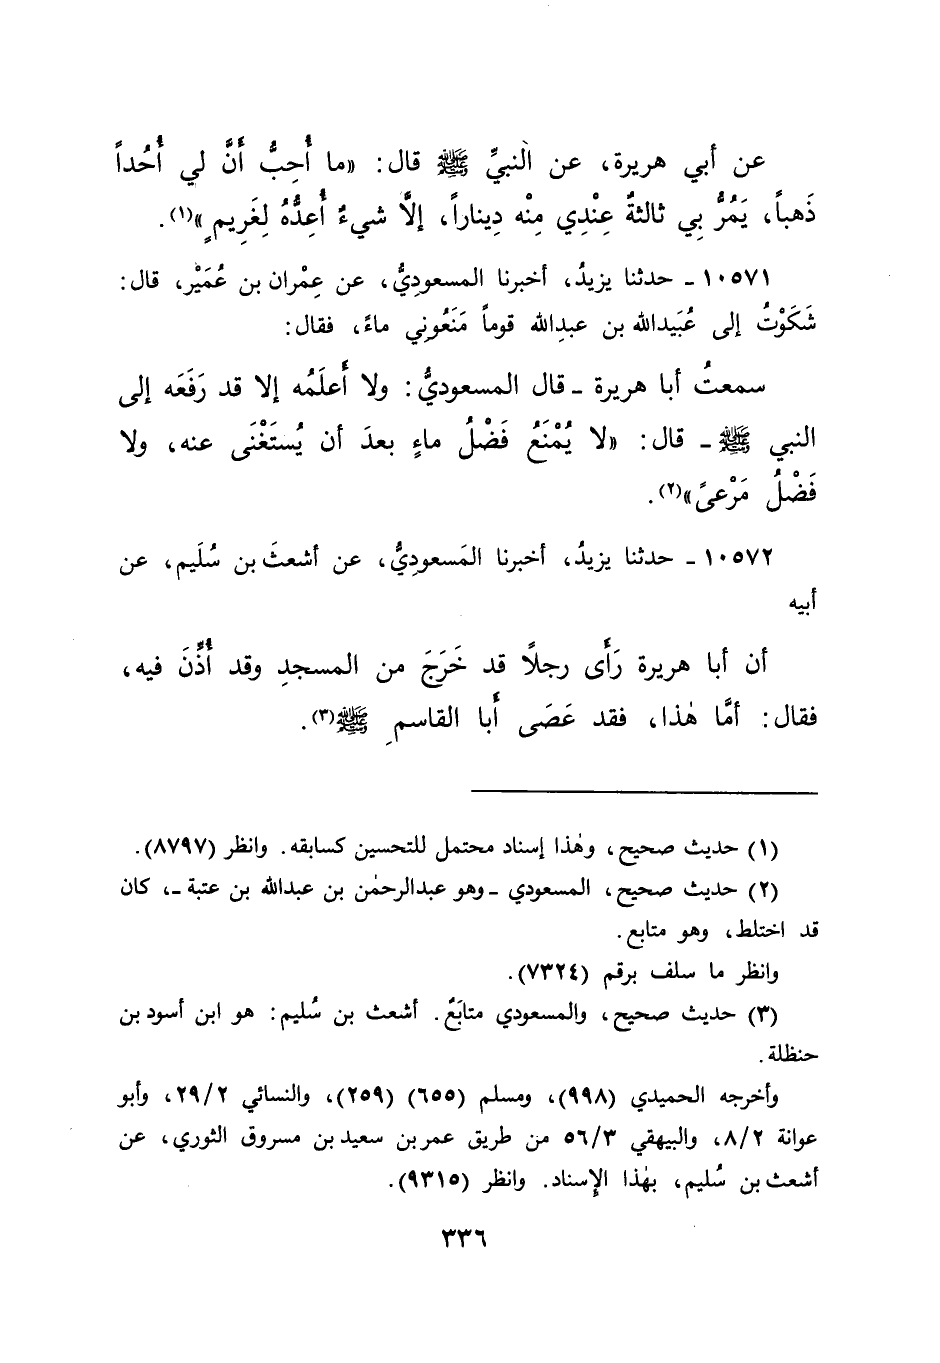 عن أبي هريرة، عن النبيِّ ﷺ قال: «ما أُحِبُّ أَنَّ لي أُحُداً
ذَهباً، يَمُرُّ بي ثالثةٌ عِنْدِي مِنْه دِيناراً، إلَّا شيءٌ أُعِدُّهُ لِغَرِيمٍ»(١).
١٠٥٧١ ـ حدثنا يزيدُ، أخبرنا المسعودِيُّ، عن عِمْران بن عُمَيْر، قال:
شَكَوْتُ إلى عُبَيدالله بن عبدِالله قوماً مَنَعُونِي ماءً، فقال:
سمعتُ أبا هريرة ـ قال المسعوديُّ: ولا أَعلَمُه إلا قد رَفَعَه إلى
النبي ﷺ ـ قال: «لا يُمْنَعُ فَضْلُ ماءٍ بعدَ أن يُستَغْنَى عنه، ولا
فَضْلُ مَرْعىً»(٢).
١٠٥٧٢ ـ حدثنا يزيدُ، أخبرنا المَسعودِيُّ، عن أشعثَ بن سُلَيم، عن
أبيه
أن أبا هريرة رَأَى رجلًا قد خَرَجَ من المسجدِ وقد أُذِّنَ فيه،
فقال: أمَّا هٰذا، فقد عَصَى أَبا القاسمِ ﷺ(٣).
(١) حديث صحيح، وهٰذا إسناد محتمل للتحسين كسابقه. وانظر (٨٧٩٧).
(٢) حديث صحيح، المسعودي ـ وهو عبدالرحمٰن بن عبدالله بن عتبة ـ، كان
قد اختلط، وهو متابع.
وانظر ما سلف برقم (٧٣٢٤).
(٣) حديث صحيح، والمسعودي متابَعٌ. أشعث بن سُليم: هو ابن أسود بن
حنظلة.
وأخرجه الحميدي (٩٩٨)، ومسلم (٦٥٥) (٢٥٩)، والنسائي ٢٩/٢، وأبو
عوانة ٨/٢، والبيهقي ٥٦/٣ من طريق عمر بن سعيد بن مسروق الثوري، عن
أشعث بن سُليم، بهٰذا الإسناد. وانظر (٩٣١٥).
٣٣٦